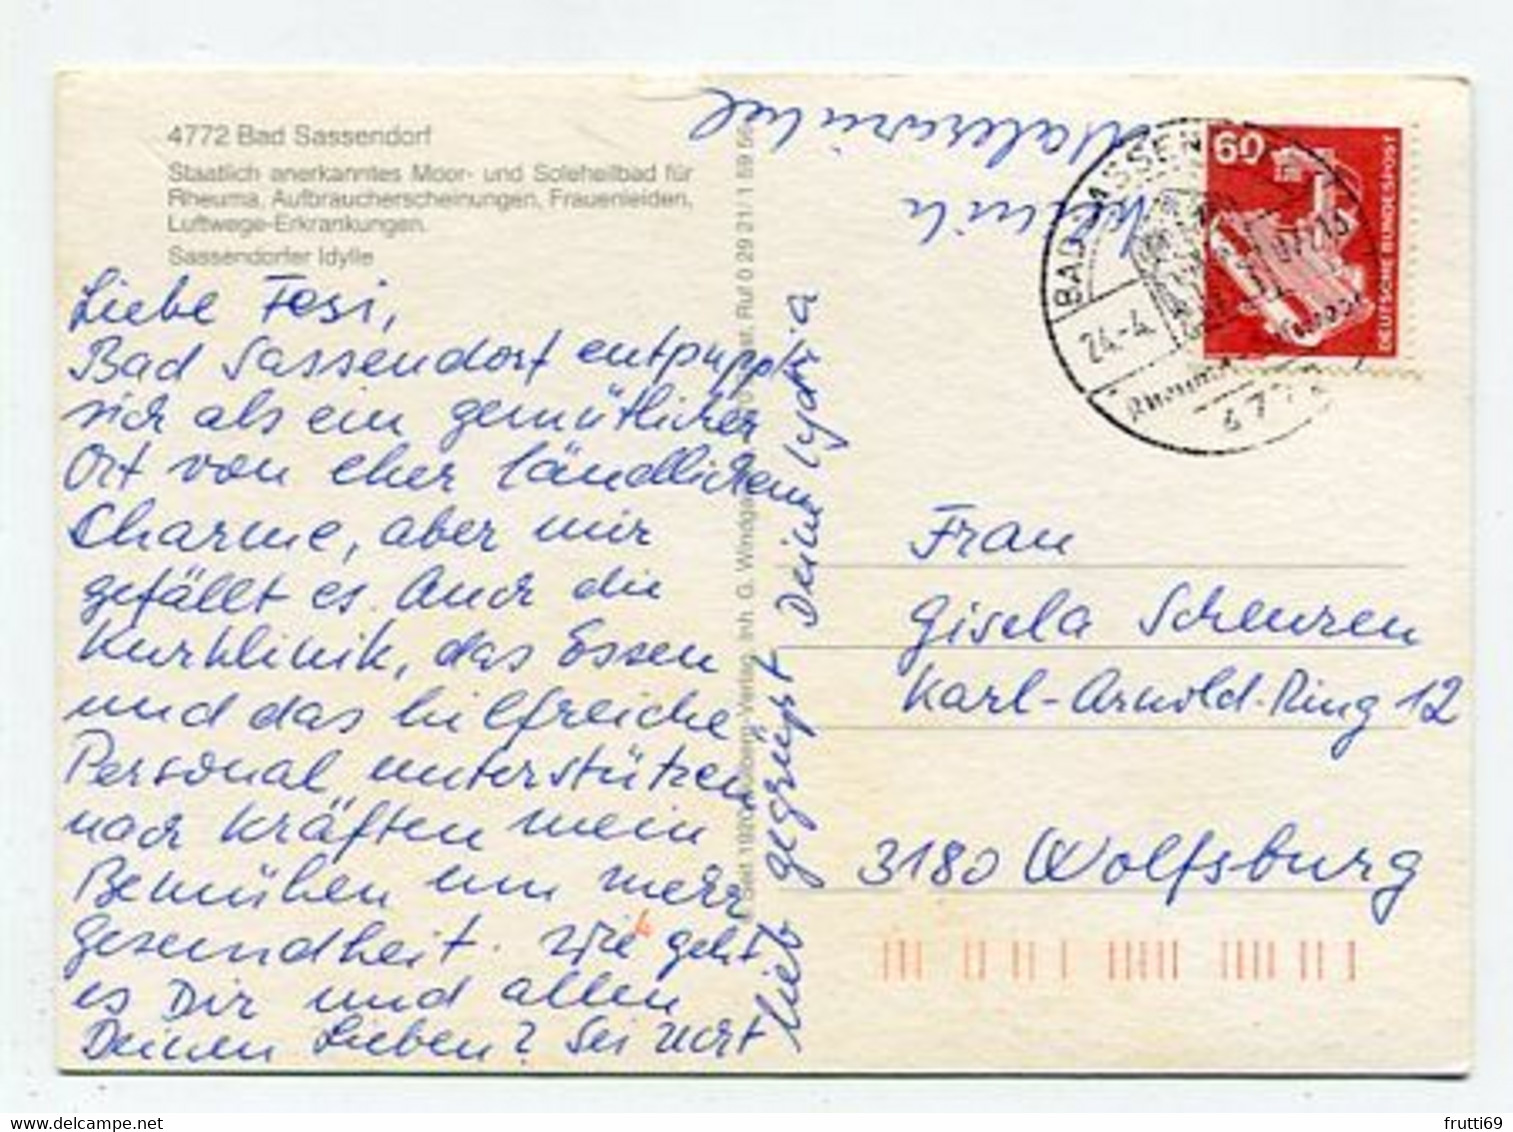 4772 Bad Sassendorf
Staatlich anerkanntes Moor- und Soleheilbad für
Rheuma, Aufbraucherscheinungen, Frauenleiden,
Luftwege-Erkrankungen.
Sassendorfer Idylle
Liebe Fesi,
Bad Sassendorf entpuppt
sich als ein gemütlicher
Ort von eher ländlichem
Charme, aber mir
gefällt es. Auch die
Kurklinik, das Essen
und das hilfreiche
Personal unterstützen
nach Kräften mein
Bemühen um mehr
Gesundheit. Wie geht
es Dir und allen
Deinen Lieben? Sei
lieb gegrüßt Deine Lydia
Inh. G. Ruf 0 29 21/1 59 56
60
DEUTSCHE BUNDESPOST
BAD SASSEN
24.-4.
477
Frau
Gisela Scheuren
Karl-Arnold-Ring 12
3180 Wolfsburg
frutti69